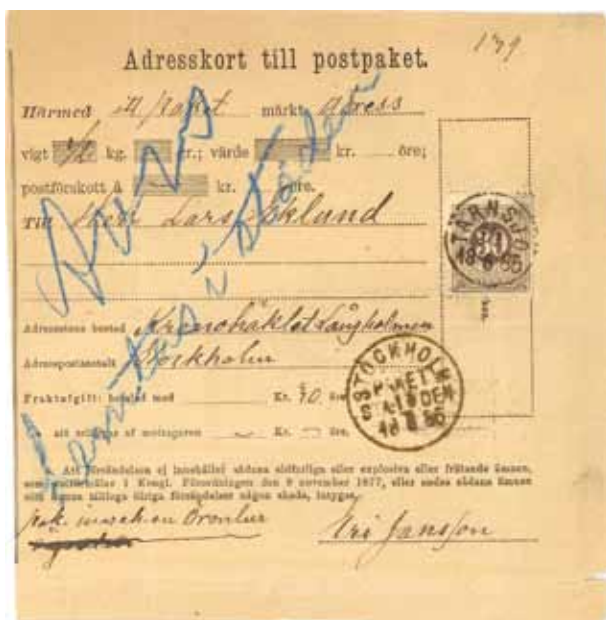 139
Adresskort till postpaket.
Härmed ett paket märkt adress
vigt 1/2 kg. gr.; värde kr. öre;
postförskott å kr. öre.
Till Herr Lars Eklund
TÄRNSJÖ
18 6 86
Adressatens bostad Kronohäktet Långholmen
Adresspostanstalt Stockholm
Fraktafgift: betalad med Kr. öre.
STOCKHOLM
PAKET
18 6 86
att erläggas af mottagaren Kr. öre.
Att försändelsen ej innehåller sådana eldfarliga eller explosiva eller frätande ämnen,
som omförmälas i Kongl. Förordningen den 9 november 1877, eller andra sådana ämnen
som kunna tillfoga öfriga försändelser någon skada, intygas,
Jansson
i staden